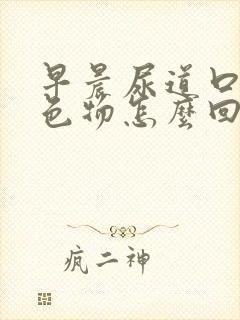 早晨尿道口
色物怎麽回
疯二神